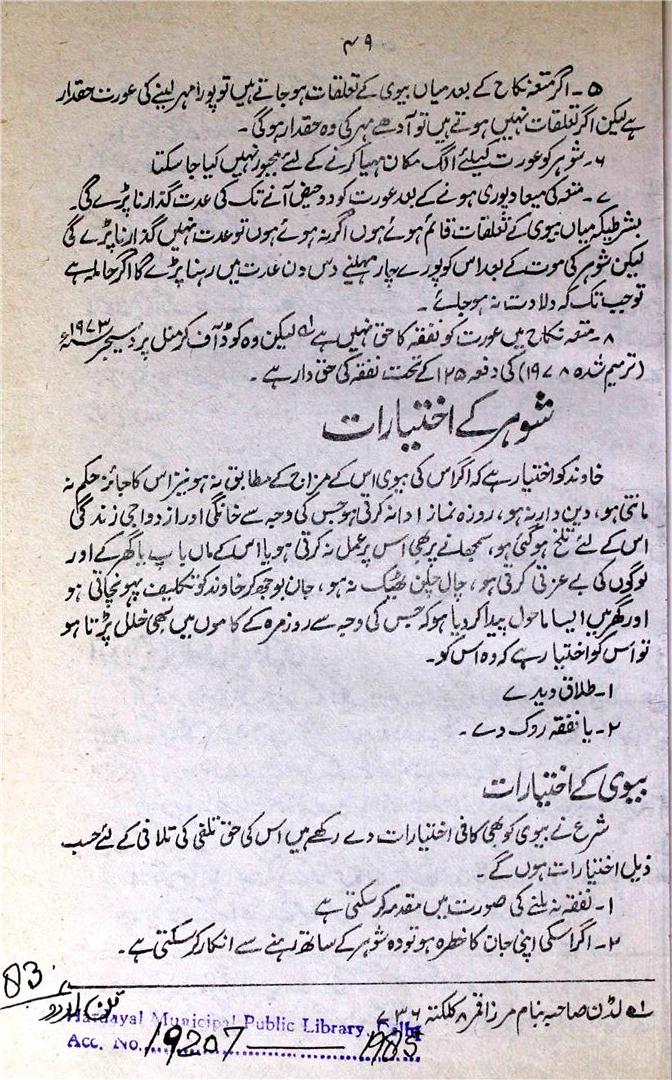 ۴۹
۵۔ اگر متعہ نکاح کے بعد میاں بیوی کے تعلقات ہو جاتے ہیں تو پورا مہر لینے کی عورت حقدار
ہے لیکن اگر تعلقات نہیں ہوتے ہیں تو آدھے مہر کی وہ حقدار ہوگی۔
۶۔ شوہر کو عورت کیلئے الگ مکان مہیا کرنے کے لئے مجبور نہیں کیا جا سکتا
۷۔ متعہ کی میعاد پوری ہونے کے بعد عورت کو دو حیض آنے تک کی عدت گذارنا پڑے گی۔
بشرطیکہ میاں بیوی کے تعلقات قائم ہوئے ہوں اگر نہ ہوئے ہوں تو عدت نہیں گذارنا پڑے گی
لیکن شوہر کی موت کے بعد اس کو پورے چار مہینے دس دن عدت میں رہنا پڑے گا اگر حاملہ ہے
تو جب تک کہ ولادت نہ ہو جائے۔
۸۔ متعہ نکاح میں عورت کو نفقہ کا حق نہیں ہے لہ لیکن وہ کوڈ آف کرمنل پروسیجر ۱۹۷۳ء
(ترمیم شدہ ۱۹۷۸) کی دفعہ ۱۲۵ کے تحت نفقہ کی حق دار ہے۔
شوہر کے اختیارات
خاوند کو اختیار ہے کہ اگر اس کی بیوی اس کے مزاج کے مطابق نہ ہو نیز اس کا جائز حکم نہ
مانتی ہو، دین دار نہ ہو، روزہ نماز ادا نہ کرتی ہو جس کی وجہ سے خانگی اور ازدواجی زندگی
اس کے لئے تلخ ہو گئی ہو، سمجھانے پر بھی اس پر عمل نہ کرتی ہو یا اس کے ماں باپ یا گھر کے اور
لوگوں کی بے عزتی کرتی ہو، چال چلن ٹھیک نہ ہو، جان بوجھ کر خاوند کو تکلیف پہونچاتی ہو
اور گھر میں ایسا ماحول پیدا کر دیا ہو کہ جس کی وجہ سے روزمرہ کے کاموں میں بھی خلل پڑتا ہو
تو اس کو اختیار ہے کہ وہ اس کو۔
۱۔ طلاق دیدے
۲۔ یا نفقہ روک دے۔
بیوی کے اختیارات
شرع نے بیوی کو بھی کافی اختیارات دے رکھے ہیں اس کی حق تلفی کی تلافی کے لئے حسب
ذیل اختیارات ہوں گے۔
۱۔ نفقہ نہ ملنے کی صورت میں مقدمہ کر سکتی ہے
۲۔ اگر اسکی اپنی جان کا خطرہ ہو تو وہ شوہر کے ساتھ رہنے سے انکار کر سکتی ہے۔
لہ لڈن صاحبہ بنام مرزا قمر ۸ کلکتہ ۷۳۶
83
Hardayal Municipal Public Library, Delhi
Acc. No. 19207 1985